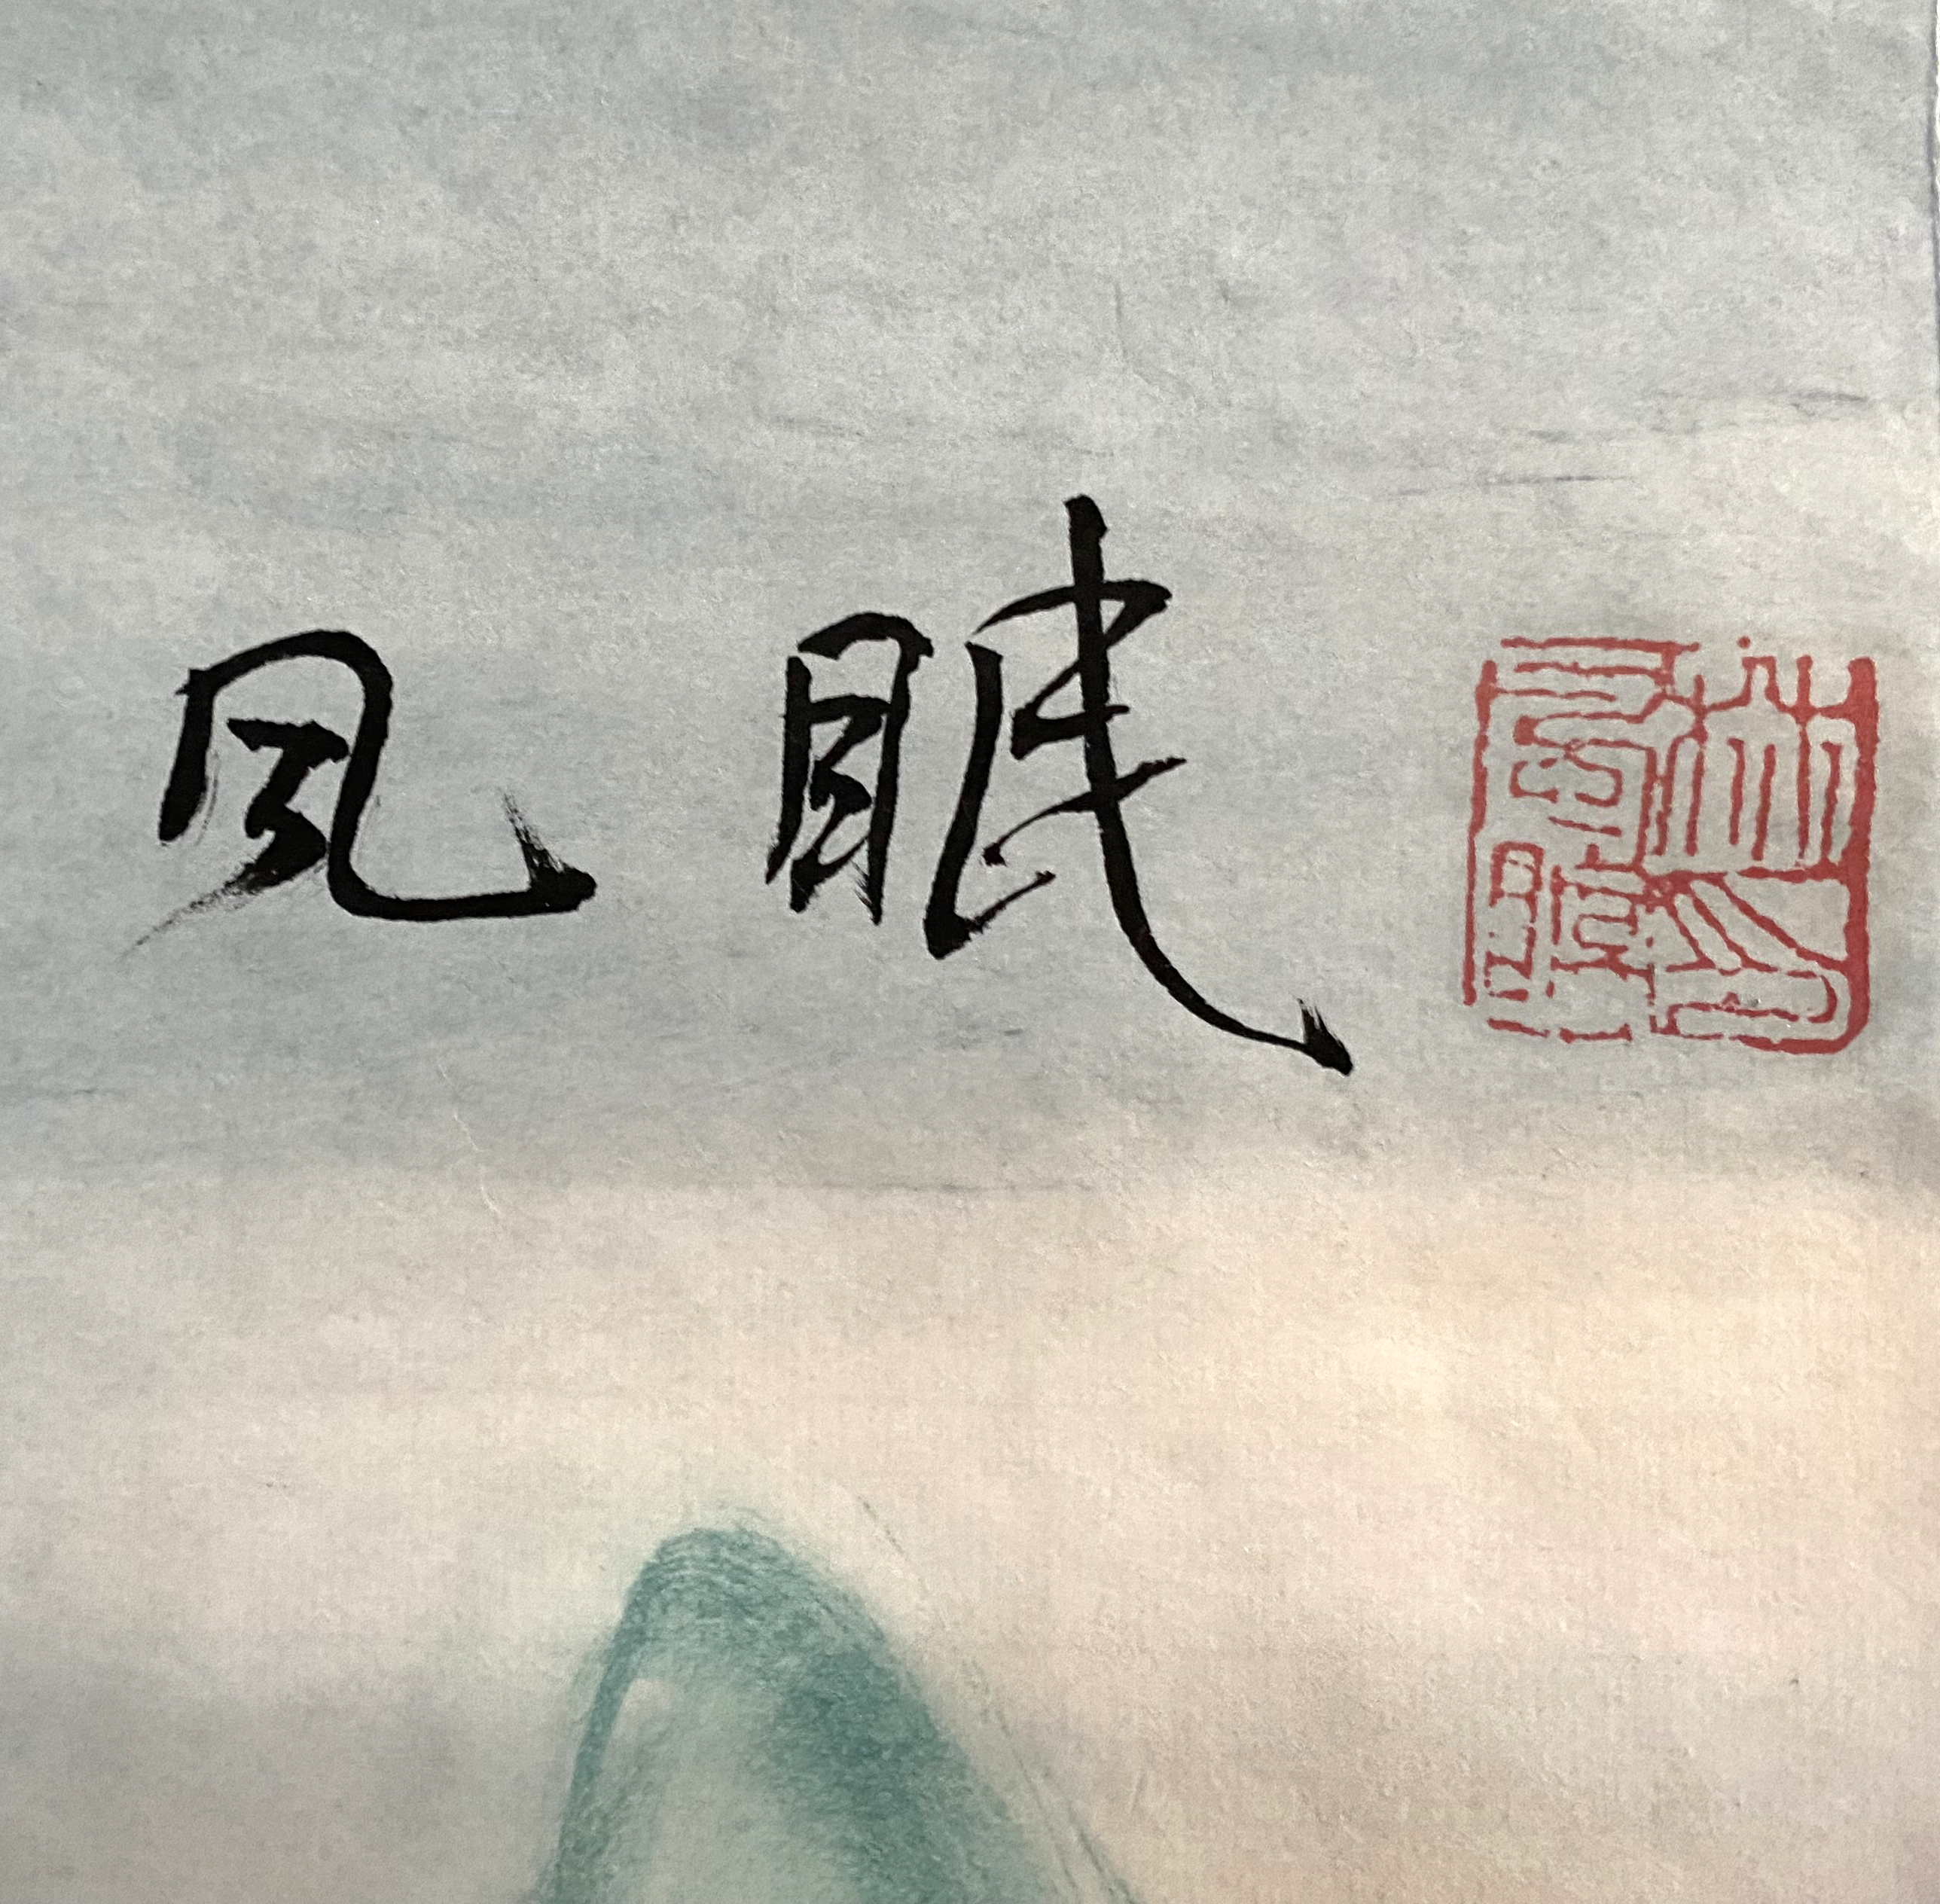 风眠
林风眠印